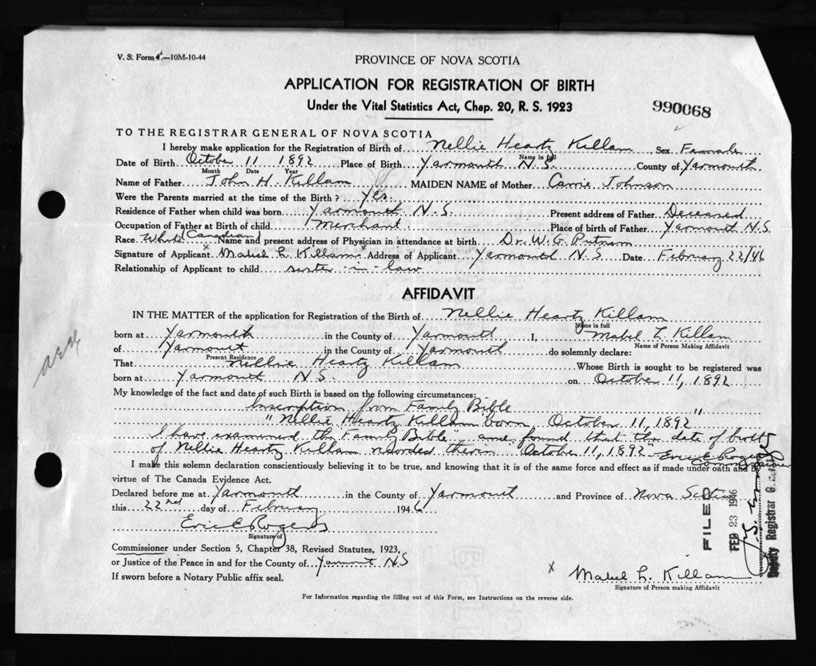 V. S. Form 4.—10M-10-44
PROVINCE OF NOVA SCOTIA
APPLICATION FOR REGISTRATION OF BIRTH
Under the Vital Statistics Act, Chap. 20, R. S. 1923
990068
TO THE REGISTRAR GENERAL OF NOVA SCOTIA
I hereby make application for the Registration of Birth of Nellie Heartz Killam Sex Female
Name in full
Date of Birth October 11 1892 Place of Birth Yarmouth N.S. County of Yarmouth
Month Date Year
Name of Father John H. Killam MAIDEN NAME of Mother Carrie Johnson
Were the Parents married at the time of the Birth? Yes.
Residence of Father when child was born Yarmouth N.S. Present address of Father Deceased
Occupation of Father at Birth of child Merchant Place of birth of Father Yarmouth N.S.
Race White (Canadian) Name and present address of Physician in attendance at birth Dr. W. G. Putnam
Signature of Applicant x Mabel L. Killam x Address of Applicant Yarmouth N.S. Date February 22/46
Relationship of Applicant to child sister-in-law
AFFIDAVIT
IN THE MATTER of the application for Registration of the Birth of Nellie Heartz Killam
Name in full
born at Yarmouth in the County of Yarmouth I, Mabel L. Killam
Name of Person Making Affidavit
of Yarmouth in the County of Yarmouth do solemnly declare:
Present Residence
That Nellie Heartz Killam Whose Birth is sought to be registered was
born at Yarmouth N.S. on October 11, 1892
My knowledge of the fact and date of such Birth is based on the following circumstances:
Inscription from Family Bible
"Nellie Heartz Killam born October 11, 1892"
I have examined the "Family Bible" and found that the date of birth
of Nellie Heartz Killam recorded therein October 11, 1892 - Eric E. Rogers
Commissioner
I make this solemn declaration conscientiously believing it to be true, and knowing that it is of the same force and effect as if made under oath and by
virtue of The Canada Evidence Act.
Declared before me at Yarmouth in the County of Yarmouth and Province of Nova Scotia
this 22nd day of February 1946
Eric E. Rogers
Signature of
Commissioner under Section 5, Chapter 38, Revised Statutes, 1923,
or Justice of the Peace in and for the County of Yarmouth N.S
If sworn before a Notary Public affix seal.
x Mabel L. Killam
Signature of Person making Affidavit
For Information regarding the filling out of this Form, see Instructions on the reverse side.
FILED
FEB 23 1946
Deputy Registrar